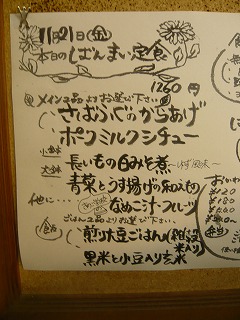 11月21日(金)
本日のしぜんまい定食
1260円
メイン2品よりお選び下さい
さばふぐのからあげ
ポクミルクシチュー
小鉢
長いもの白みそ煮 〜ゆず風味〜
大鉢
青菜とうす揚げの和えもの
他に…
なめこ汁・フルーツ
ごはん2品よりお選び下さい
煎り大豆ごはん
米入り
黒米と小豆入り玄米
おかわ
¥120
弁当